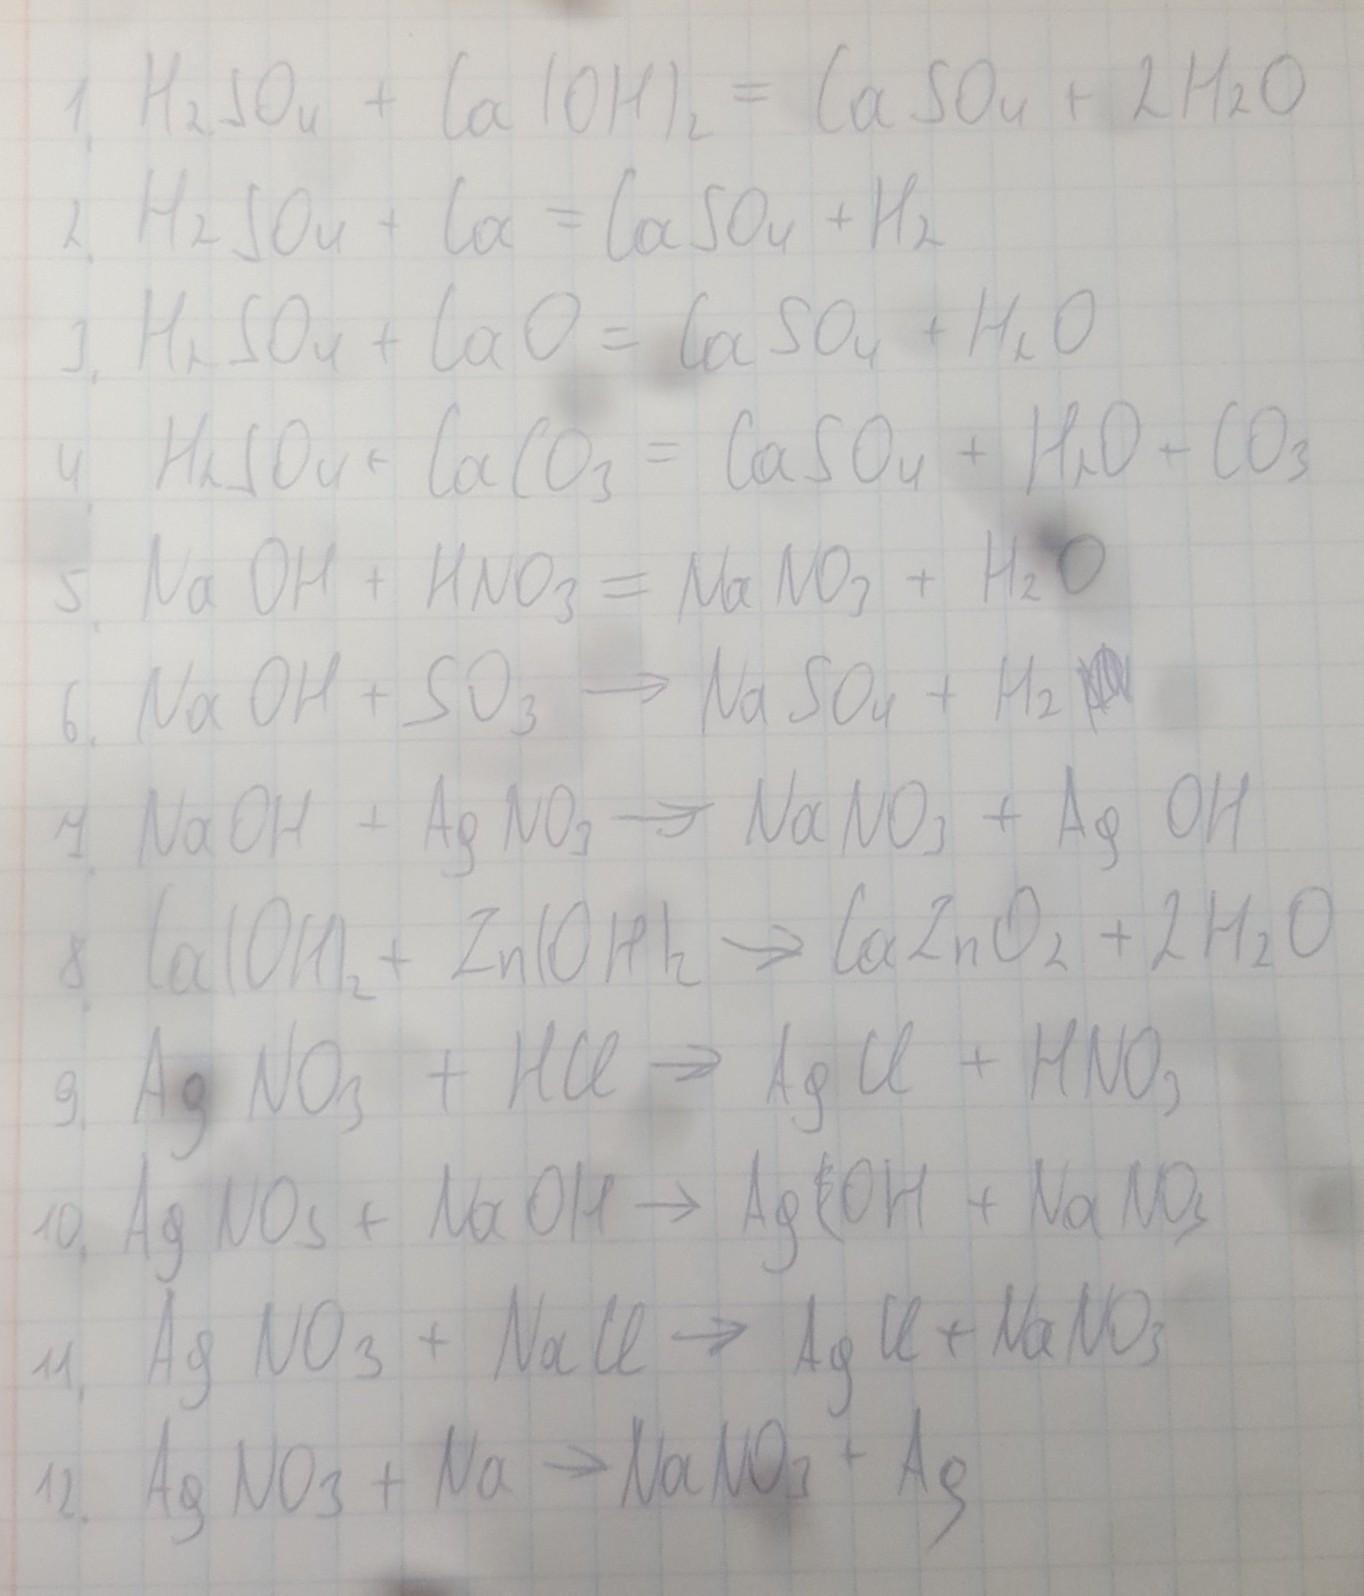 1. H₂SO₄ + Ca(OH)₂ = CaSO₄ + 2H₂O
2. H₂SO₄ + Ca = CaSO₄ + H₂
3. H₂SO₄ + CaO = CaSO₄ + H₂O
4 H₂SO₄ + CaCO₃ = CaSO₄ + H₂O + CO₃
5. NaOH + HNO₃ = NaNO₃ + H₂O
6. NaOH + SO₃ → NaSO₄ + H₂
7 NaOH + AgNO₃ → NaNO₃ + AgOH
8. Ca(OH)₂ + Zn(OH)₂ → CaZnO₂ + 2H₂O
9. AgNO₃ + HCl → AgCl + HNO₃
10. AgNO₃ + NaOH → AgOH + NaNO₃
11. AgNO₃ + NaCl → AgCl + NaNO₃
12. AgNO₃ + Na → NaNO₃ + Ag